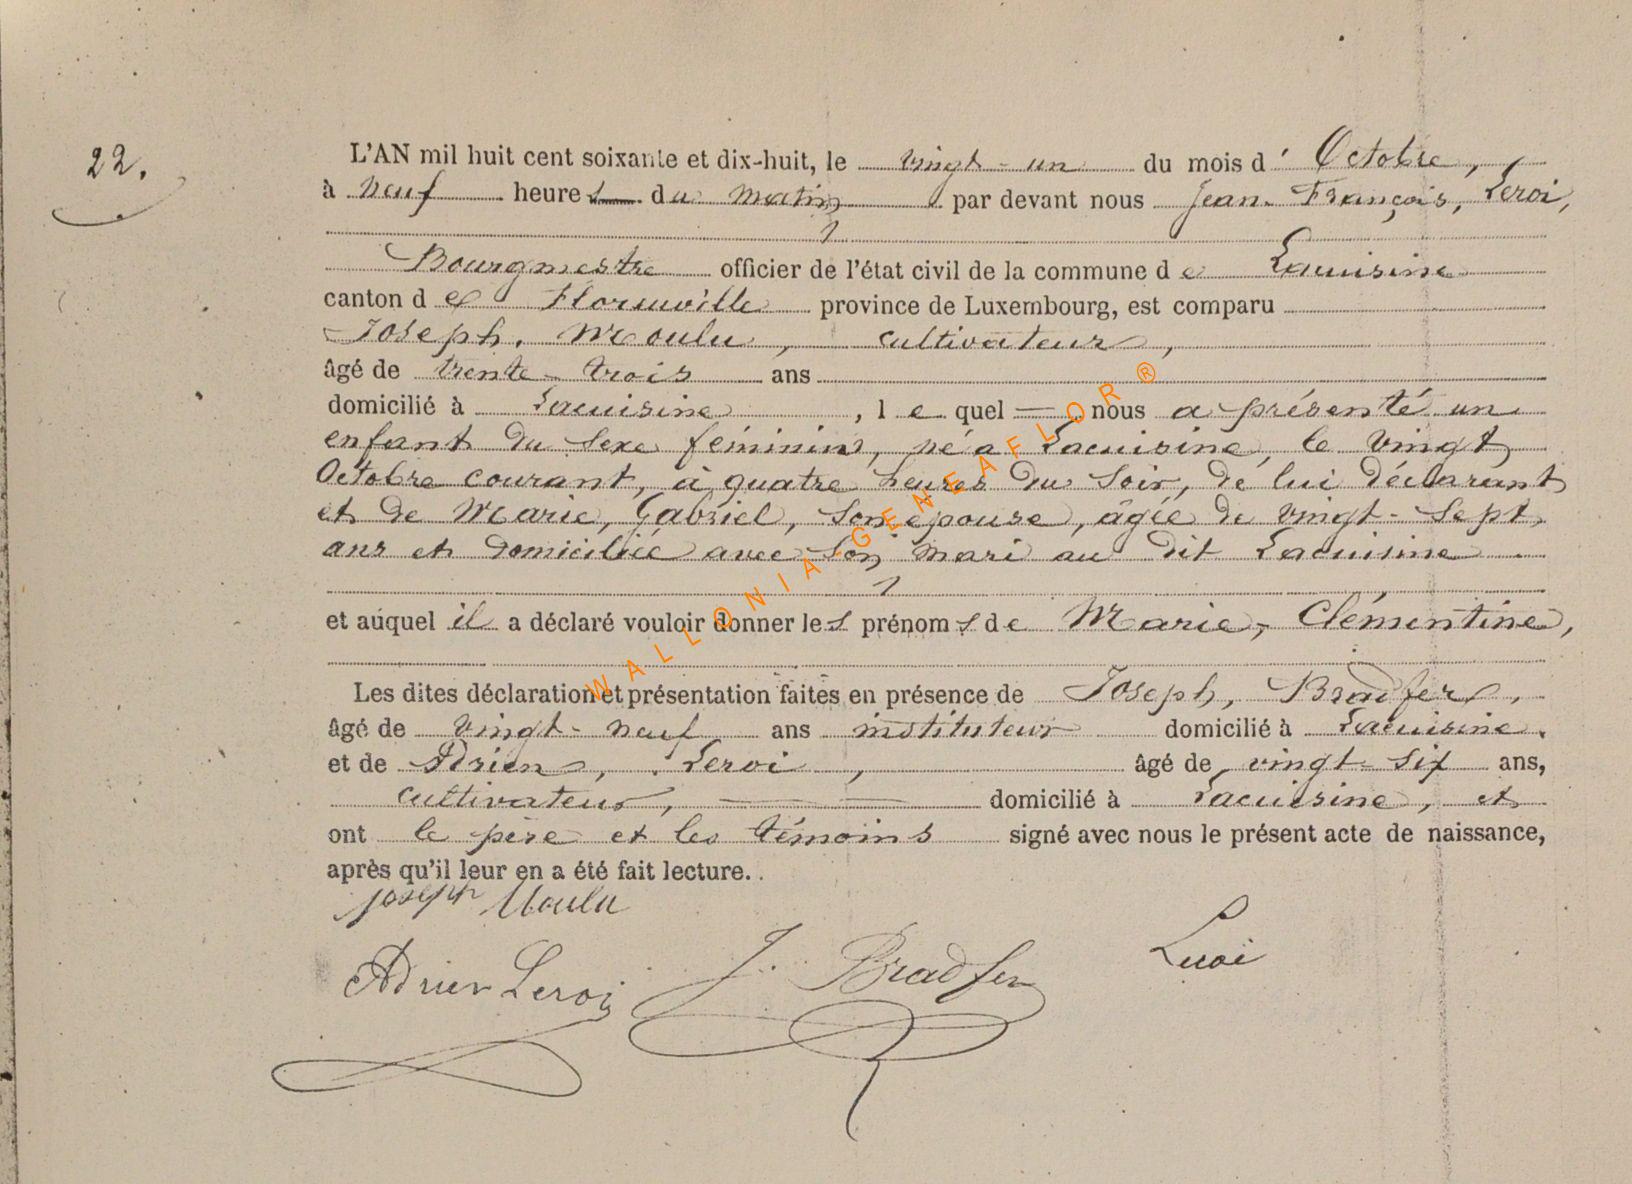 22.
L'AN mil huit cent soixante et dix-huit, le vingt-un du mois d' Octobre,
à neuf heures du matin par devant nous Jean-François, Leroi,
Bourgmestre officier de l'état civil de la commune de Lacuisine
canton de Florenville province de Luxembourg, est comparu
Joseph, Moulu, cultivateur,
âgé de trente-trois ans
domicilié à Lacuisine, lequel — nous a présenté un
enfant du sexe féminin, né à Lacuisine, le vingt
Octobre courant, à quatre heures du soir, de lui déclarant
et de Marie, Gabriel, son épouse, âgée de vingt-sept
ans et domiciliée avec son mari au dit Lacuisine
et auquel il a déclaré vouloir donner les prénoms de Marie, Clémentine,
Les dites déclaration et présentation faites en présence de Joseph, Bradfer,
âgé de vingt-neuf ans instituteur domicilié à Lacuisine.
et de Adrien, Leroi, âgé de vingt-six ans,
cultivateur, — — domicilié à Lacuisine, et
ont le père et les témoins signé avec nous le présent acte de naissance,
après qu'il leur en a été fait lecture.
Joseph Moulu
Adrien Leroi J. Bradfer Leroi
WALLONIA-GENEAFLOR®